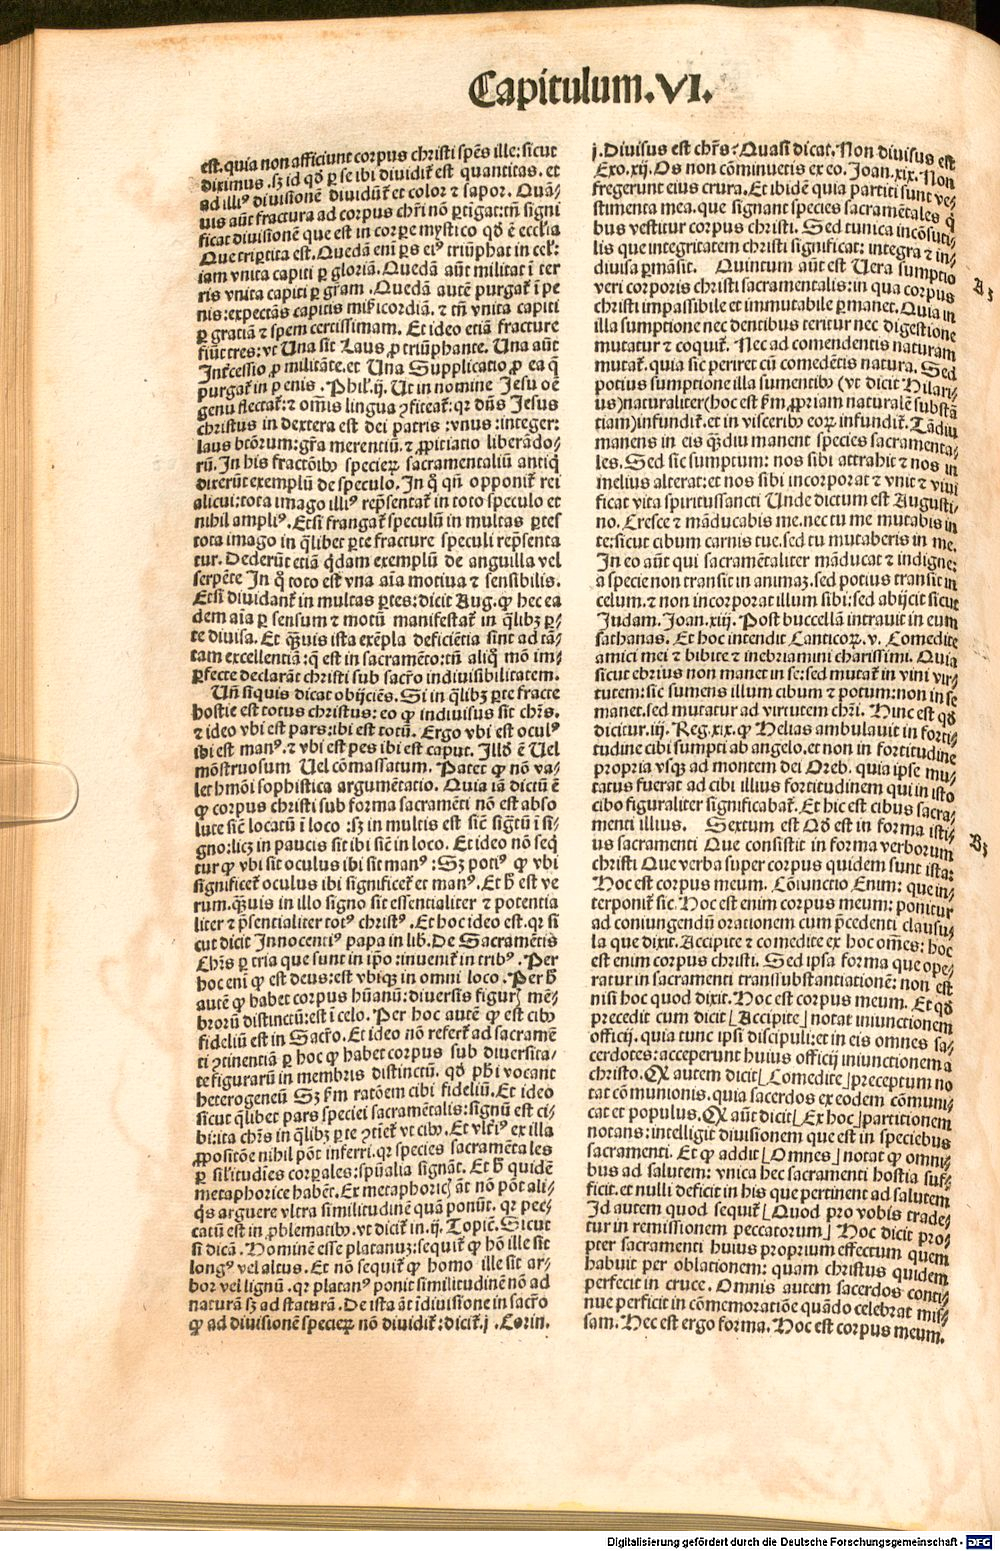 Capitulum.VI.
est.quia non afficiunt corpus christi spēs ille:sicut
diximus.sʒ id qd̄ ꝑ se ibi diuidit̄ est quantitas.et
ad illiꝰ diuisionē diuidūt̄ et color ⁊ sapor. Quā⸗
uis aūt fractura ad corpus chr̄i nō ꝑtigat:tn̄ signi
ficat diuisionē que est in corꝑe mystico qd̄ ē eccl̄ia
Que triꝑtita est.Quedā eni ꝑs eiꝰ triūphat in cel̄:
iam vnita capiti ꝑ gloriā.Quedā aūt militat ī ter
ris vnita capiti ꝑ gr̄am .Quedā autē purgat̄ ī pe
nis:expectās capitis mīcordiā.⁊ tn̄ vnita capiti
ꝑ gratiā ⁊ spem certissimam. Et ideo etiā fracture
fiūt tres:vt Una sit Laus ꝓ triūphante. Una aūt
Int̄cessio ꝓ militāte.et Una Supplicatio ꝓ ea q̄
purgat̄ in penis .Phil̄.ij. Ut in nomine Jesu oē
genu flectat̄:⁊ om̄is lingua ꝯfiteat̄:qr dn̄s Jesus
christus in dextera est dei patris :vnus:integer:
laus btōrum:gr̄a merentiū.⁊ ꝓpitiatio liberādo⸗
rū.In his fractōibꝰ specieꝝ sacramentaliū antiq̄
dixerūt exemplū de speculo.In q̄ qn̄ opponit̄ rei
alicui:tota imago illiꝰ rep̄sentat̄ in toto speculo et
nihil ampliꝰ.Etsi frangat̄ speculū in multas ꝑtes
tota imago in q̄libet ꝑte fracture speculi rep̄senta
tur.Dederūt etiā q̄dam exemplū de anguilla vel
serpēte In q̄ toto est vna aīa motiua ⁊ sensibilis.
Etsi diuidant̄ in multas ꝑtes:dicit Aug.ꝙ hec ea
dem aīa ꝑ sensum ⁊ motū manifestat̄ in q̄libꝫ ꝑ⸗
te diuisa. Et q̄uis ista exēpla deficiētia sint ad tā⸗
tam excellentiā:q̄ est in sacramēto:tn̄ aliq̄ mō im⸗
ꝑfecte declarāt christi sub sacr̄o indiuisibilitatem.
Un̄ siquis dicat obijciēs.Si in q̄libꝫ ꝑte fracte
hostie est totus christus: eo ꝙ indiuisus sit chr̄s.
⁊ ideo vbi est pars:ibi est totū. Ergo vbi est oculꝰ
ibi est manꝰ.⁊ vbi est pes ibi est caput. Illd̄ ē Uel
mōstruosum Uel cōmassatum. Patet ꝙ nō va⸗
let hmōi sophistica argumētatio. Quia iā dictū ē
ꝙ corpus christi sub forma sacramēti nō est abso
lute siē locatū ī loco :sꝫ in multis est siē sigtū ī si⸗
gno:licꝫ in paucis sit ibi siē in loco. Et ideo nō seq̄
tur ꝙ vbi sit oculus ibi sit manꝰ :Sꝫ potiꝰ ꝙ vbi
significet̄ oculus ibi significet̄ et manꝰ.Et h̄ est ve
rum.q̄uis in illo signo sit essentialiter ⁊ potentia
liter ⁊ p̄sentialiter totꝰ christꝰ .Et hoc ideo est.qr si
cut dicit Innocentiꝰ papa in lib̄.De Sacramētis
Chr̄s ꝑ tria que sunt in ip̄o:inuenit̄ in tribꝰ .Per
hoc enī ꝙ est deus:est vbiqꝫ in omni loco .Per h̄
autē ꝙ habet corpus hūanū:diuersis figur̄ mē⸗
brorū distinctū:est ī celo. Per hoc autē ꝙ est cibꝰ
fideliū est in Sacr̄o.Et ideo nō refert̄ ad sacramē
ti ꝯtinentiā ꝑ hoc ꝙ habet corpus sub diuersita⸗
te figurarū in membris distinctū. qd̄ ph̄i vocant
heterogeneū Sꝫ fm ratōem cibi fideliū.Et ideo
sicut q̄libet pars speciei sacramētalis:signū est ci⸗
bi:ita chr̄s in q̄libꝫ ꝑte ꝯtiet̄ vt cibꝰ.Et vlt̄iꝰ ex illa
ꝓpositōe nihil pōt inferri.qr species sacramētales
ꝑ sil̄itudīes corꝑales:spūalia signāt. Et h̄ quidē
metaphorice habēt.Ex metaphoric̄ āt nō pōt ali⸗
q̄s arguere vltra similitudinē quā ponūt. qr pec⸗
catū est in ꝓblematibꝰ.vt dicit̄ in.ij.Topic̄.Sicut
si dicā .Hominē esse platanuꝫ:sequit̄ ꝙ hō ille sit
longꝰ vel altus. Et nō sequit̄ ꝙ homo ille sit ar⸗
bor vel lignū .qr platanꝰ ponit similitudinē nō ad
naturā sꝫ ad staturā.De ista āt īdiuisione in sacr̄o
ꝙ ad diuisionē specieꝝ nō diuidit̄:dicit̄.j .Corin.
j.Diuisus est chr̄s? Quasi dicat. Non diuisus est
Exo.xij.Os non cōminuetis ex eo.Joan.xix.Non
fregerunt eius crura.Et ibidē quia partiti sunt ve⸗
stimenta mea.que signant species sacramētales q̄
bus vestitur corpus christi. Sed tunica incōsuti⸗
lis que integritatem christi significat: integra ⁊ in⸗
diuisa ꝑmāsit. Quintum aūt est Uera sumptio
veri corporis christi sacramentalis:in qua corpus
christi impassibile et immutabile ꝑmanet.Quia in
illa sumptione nec dentibus teritur nec digestione
mutatur ⁊ coquit̄. Nec ad comendentis naturam
mutat̄.quia sic periret cū comedētis natura. Sed
potius sumptione illa sumentibꝰ (vt dicit Hilari⸗
us)naturaliter(hoc est fm ꝓpriam naturalē substā
tiam)infundit̄.et in visceribꝰ eoꝝ infundit̄.Tādiu
manens in eis q̄diu manent species sacramenta⸗
les. Sed sic sumptum: nos sibi attrahit ⁊ nos in
melius alterat:et nos sibi incorporat ⁊ vnit ⁊ viui
ficat vita spiritussancti Unde dictum est Augusti⸗
no. Cresce ⁊ māducabis me.nec tu me mutabis in
te:sicut cibum carnis tue.sed tu mutaberis in me.
In eo aūt qui sacramētaliter māducat ⁊ indigne:
a specie non transit in animaꝫ.sed potius transit in
celum.⁊ non incorporat illum sibi:sed abijcit sicut
Judam.Joan.xiij. Post buccellā intrauit in eum
sathanas. Et hoc intendit Canticoꝝ.v. Comedite
amici mei ⁊ bibite ⁊ inebriamini charissimi. Quia
sicut ebrius non manet in se:sed mutat̄ in vini vir⸗
tutem:sic sumens illum cibum ⁊ potum:non in se
manet.sed mutatur ad virtutem chr̄i. Hinc est qd̄
dicitur.iij. Reg.xix.ꝙ Helias ambulauit in forti⸗
tudine cibi sumpti ab angelo.et non in fortitudine
propria vsqꝫ ad montem dei Oreb. quia ipse mu⸗
tatus fuerat ad cibi illius fortitudinem qui in isto
cibo figuraliter significabat̄. Et hic est cibus sacra⸗
menti illius. Sextum est Qd̄ est in forma isti⸗
us sacramenti Que consistit in forma verborum
christi Que verba super corpus quidem sunt ista:
Hoc est corpus meum. Cōiunctio Enim: que in⸗
terponit̄ sic. Hoc est enim corpus meum: ponitur
ad coniungendū orationem cum p̄cedenti clausu⸗
la que dixit.Accipite ⁊ comedite ex hoc om̄es: hoc
est enim corpus christi. Sed ipsa forma que ope⸗
ratur in sacramenti transsubstantiationē: non est
nisi hoc quod dixit.Hoc est corpus meum. Et qd̄
precedit cum dicit ⌊Accipite⌋ notat iniunctionem
officij. quia tunc ipsi discipuli:et in eis omnes sa⸗
cerdotes:acceperunt huius officij iniunctionem a
christo.Qꝫ autem dicit⌊Comedite⌋preceptum no
tat cōmunionis.quia sacerdos ex eodem cōmuni⸗
cat et populus.Qꝫ aūt dicit⌊Ex hoc⌋partitionem
notans:intelligit diuisionem que est in speciebus
sacramenti. Et ꝙ addit⌊Omnes⌋notat ꝙ omni⸗
bus ad salutem: vnica hec sacramenti hostia suf⸗
ficit.et nulli deficit in his que pertinent ad salutem
Id autem quod sequit̄⌊Quod pro vobis trade⸗
tur in remissionem peccatorum⌋ Hoc dicit pro⸗
pter sacramenti huius proprium effectum quem
habuit per oblationem: quam christus quidem
perfecit in cruce. Omnis autem sacerdos conti⸗
nue perficit in cōmemoratiōe quādo celebrat mis⸗
sam. Hec est ergo forma.Hoc est corpus meum.
Aꝫ
Bꝫ
Digitalisierung gefördert durch die Deutsche Forschungsgemeinschaft - DFG